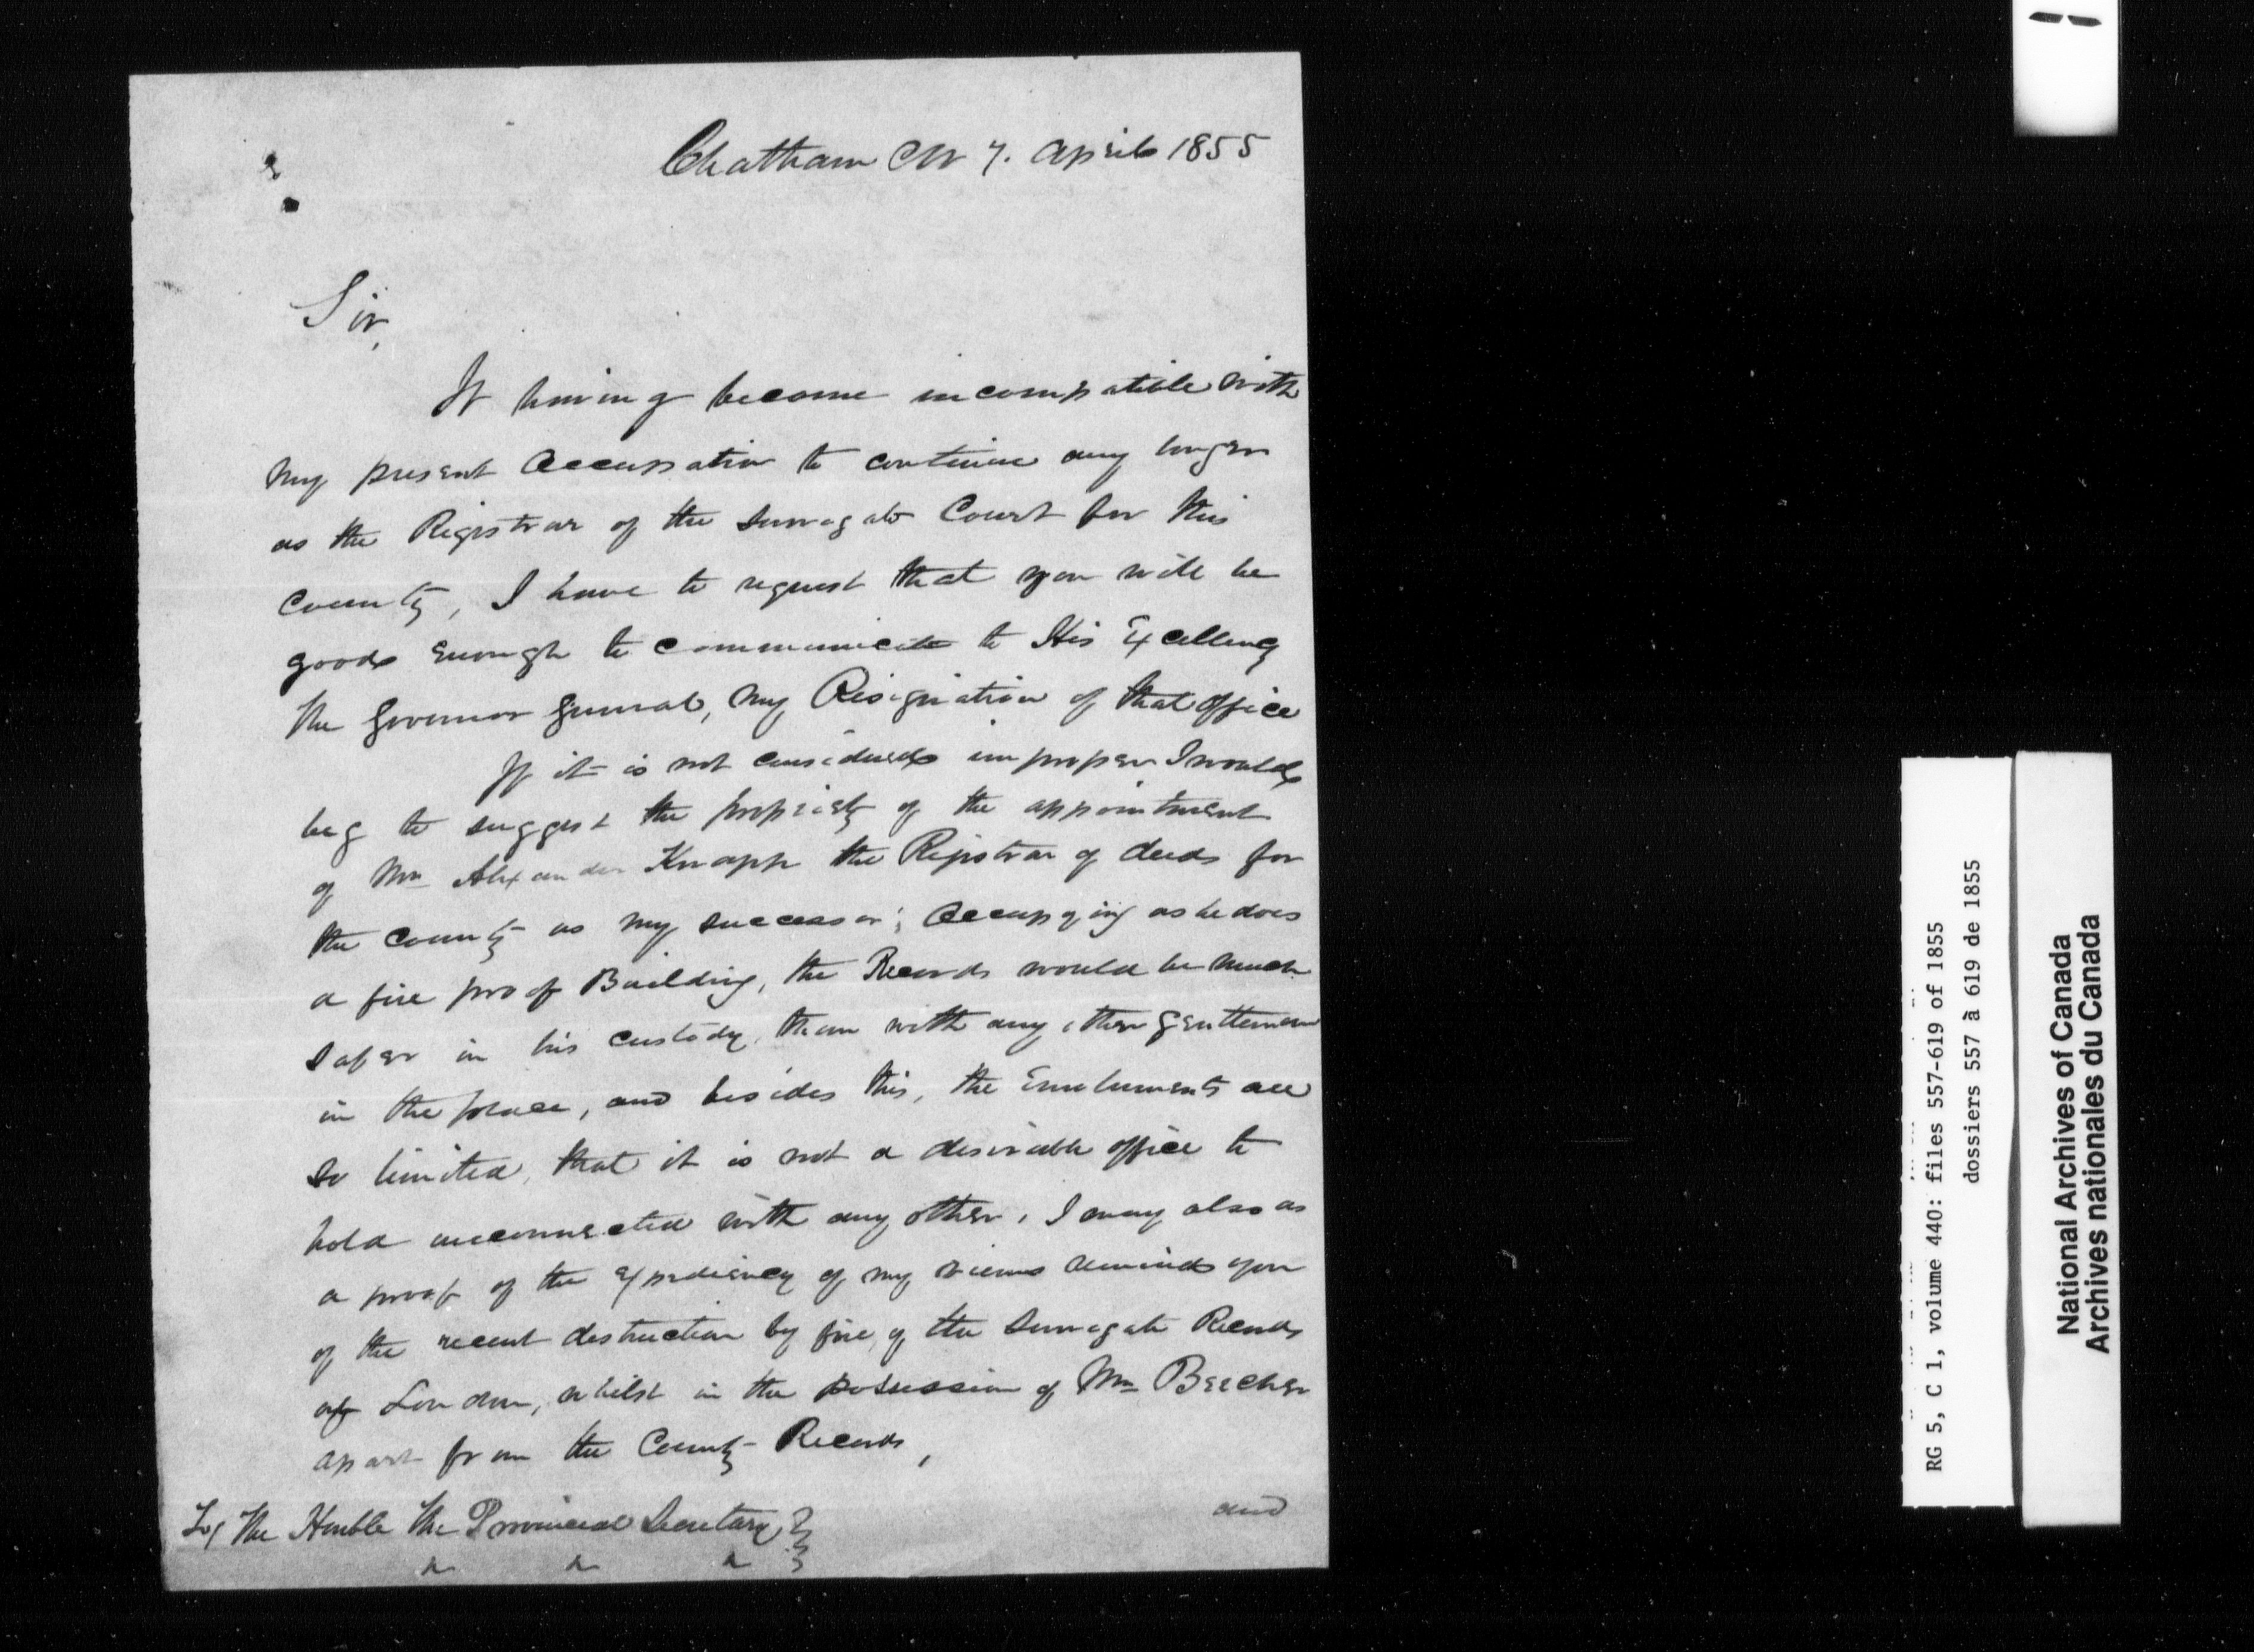 Chatham CW 7. April 1855
Sir,
It having become incompatible with
my present Occupation to continue any longer
as the Registrar of the Surrogate Court for this
County, I have to request that you will be
good enough to communicate to His Excellency
the Governor General, my Resignation of that Office
If it is not considered improper I would
beg to suggest the propriety of the appointment
of Mr Alexander Knapp the Registrar of deeds for
the County as my successor; Occupying as he does
a fire proof Building, the Records would be much
safer in his custody, than with any other Gentleman
in the place, and besides this, the Emoluments are
so limited, that it is not a desirable office to
hold unconnected with any other, I may also as
a proof of the Expediency of my views remind you
of the recent destruction by fire, of the Surrogate Records
of London, whilst in the possession of Mr Beecher
apart from the County Records,
and
To/ The Honble the Provincial Secretary
RG 5, C 1, volume 440: files 557-619 of 1855
dossiers 557 à 619 de 1855
National Archives of Canada
Archives nationales du Canada